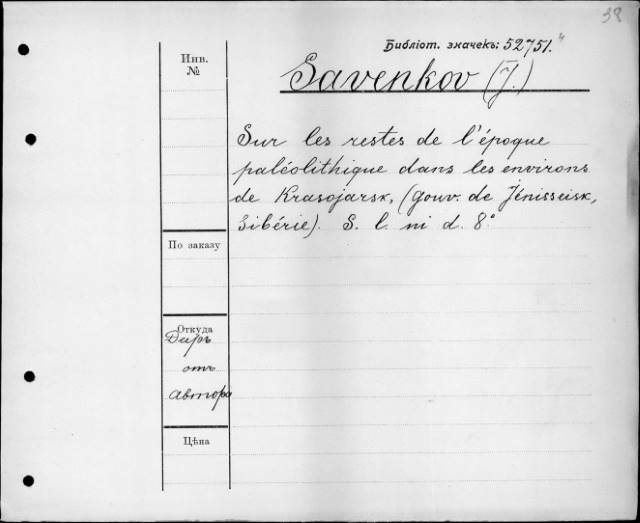 38
Библіот. значекъ: 52751.
Инв.
№
Savenkov (J.)
Sur les restes de l'époque
paléolithique dans les environs
de Krasojarsk, (gouv. de Jénisseisk,
Sibérie). S. l. ni d. 8°
По заказу
Откуда
Даръ
отъ
автора
Цѣна